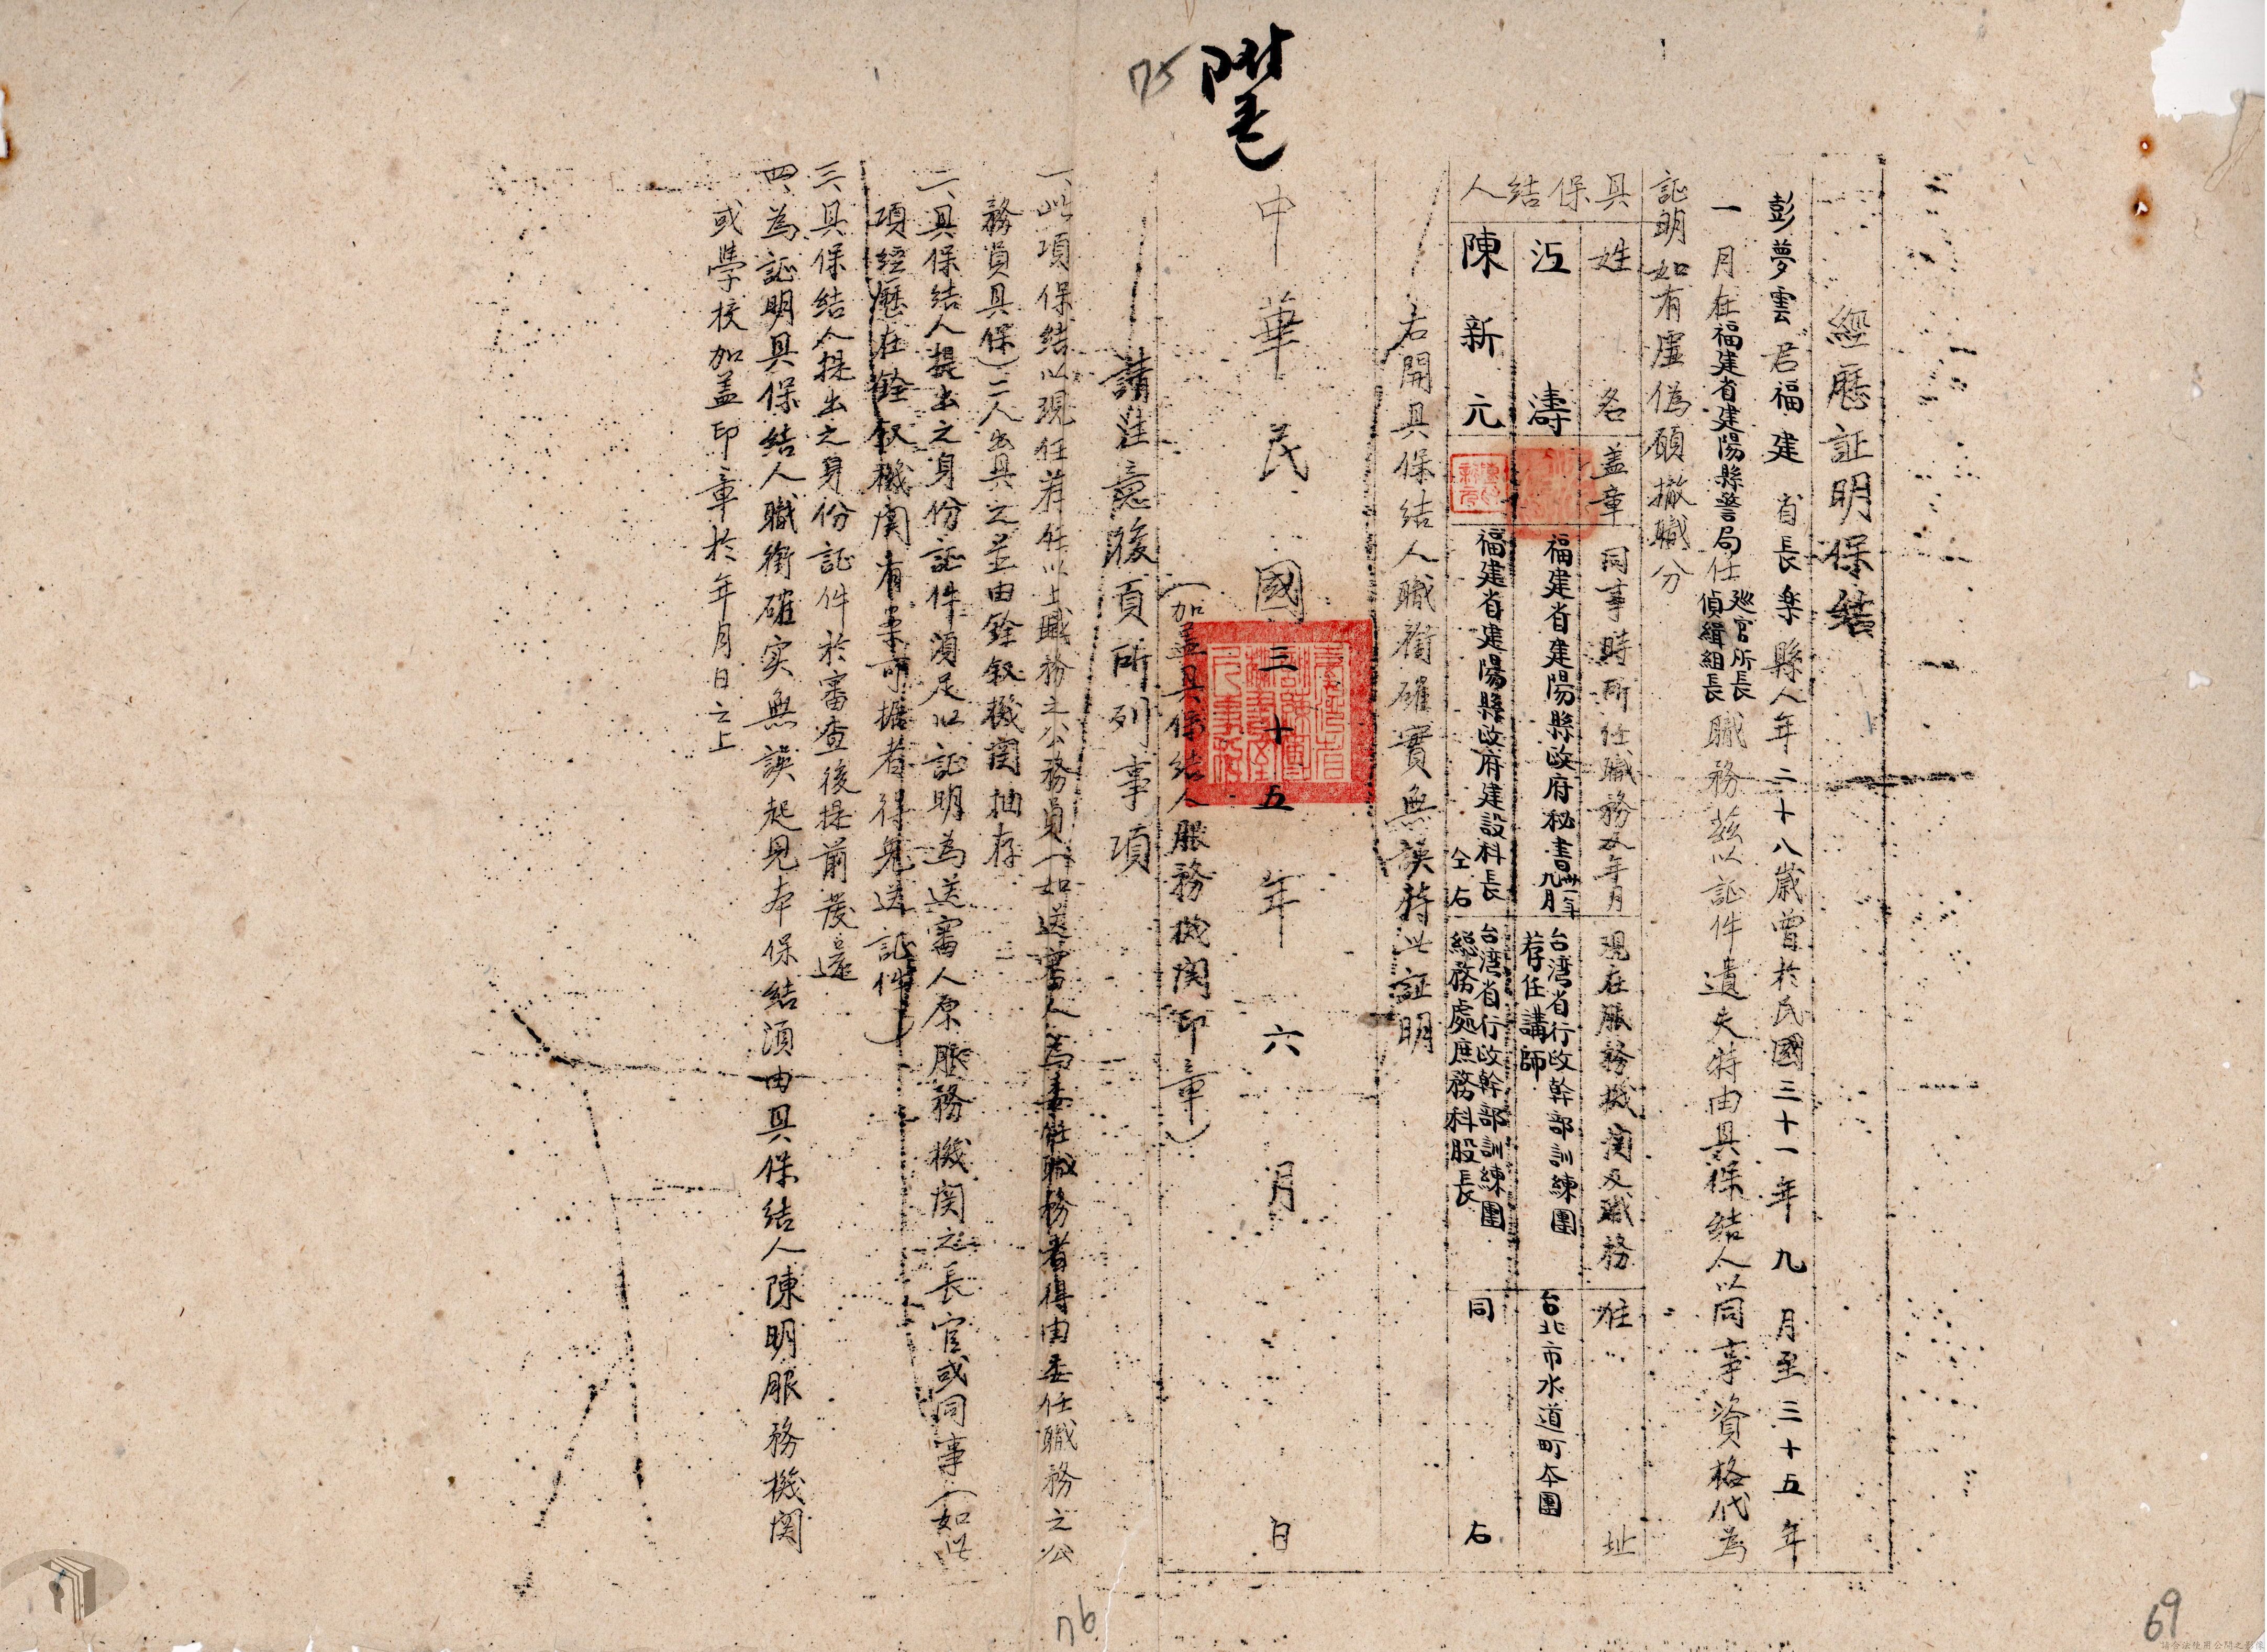 經歷証明保結
彭夢雲君福建省長樂縣人年二十八歲曾於民國三十一年九月至三十五年
一月在福建省建陽縣警局任巡官所長偵緝組長職務茲以証件遺失特由具保結人以同事資格代為
証明如有虛偽願撤職分
具保結人
姓名 盖章 同事時所任職務及年月 現在服務機関及職務 住址
江濤 福建省建陽縣政府秘書卅一年九月 台湾省行政幹部訓練團荐任講師 台北市水道町本團
陳新元 福建省建陽縣政府建設科長仝右 台湾省行政幹部訓練團総務處庶務科股長 同右
右開具保結人職銜確實無誤特此証明
中華民國三十五年六月日
(加盖具保結人服務機関印章)
請注意後頁所列事項
一、此項保結以現任荐任以上職務之公務員(如送審人為委任職務者得由委任職務之公
務員具保)二人出具之並由銓叙機関抽存
二、具保結人提出之身份証件須足以証明為送審人原服務機関之長官或同事(如此
項經歷在銓叙機関有案可据者得免送証件)
三、具保結人提出之身份証件於審查後提前發還
四、為証明具保結人職銜確实無誤起見本保結須由具保結人陳明服務機関
或學校加盖印章於年月日之上
75
76
69